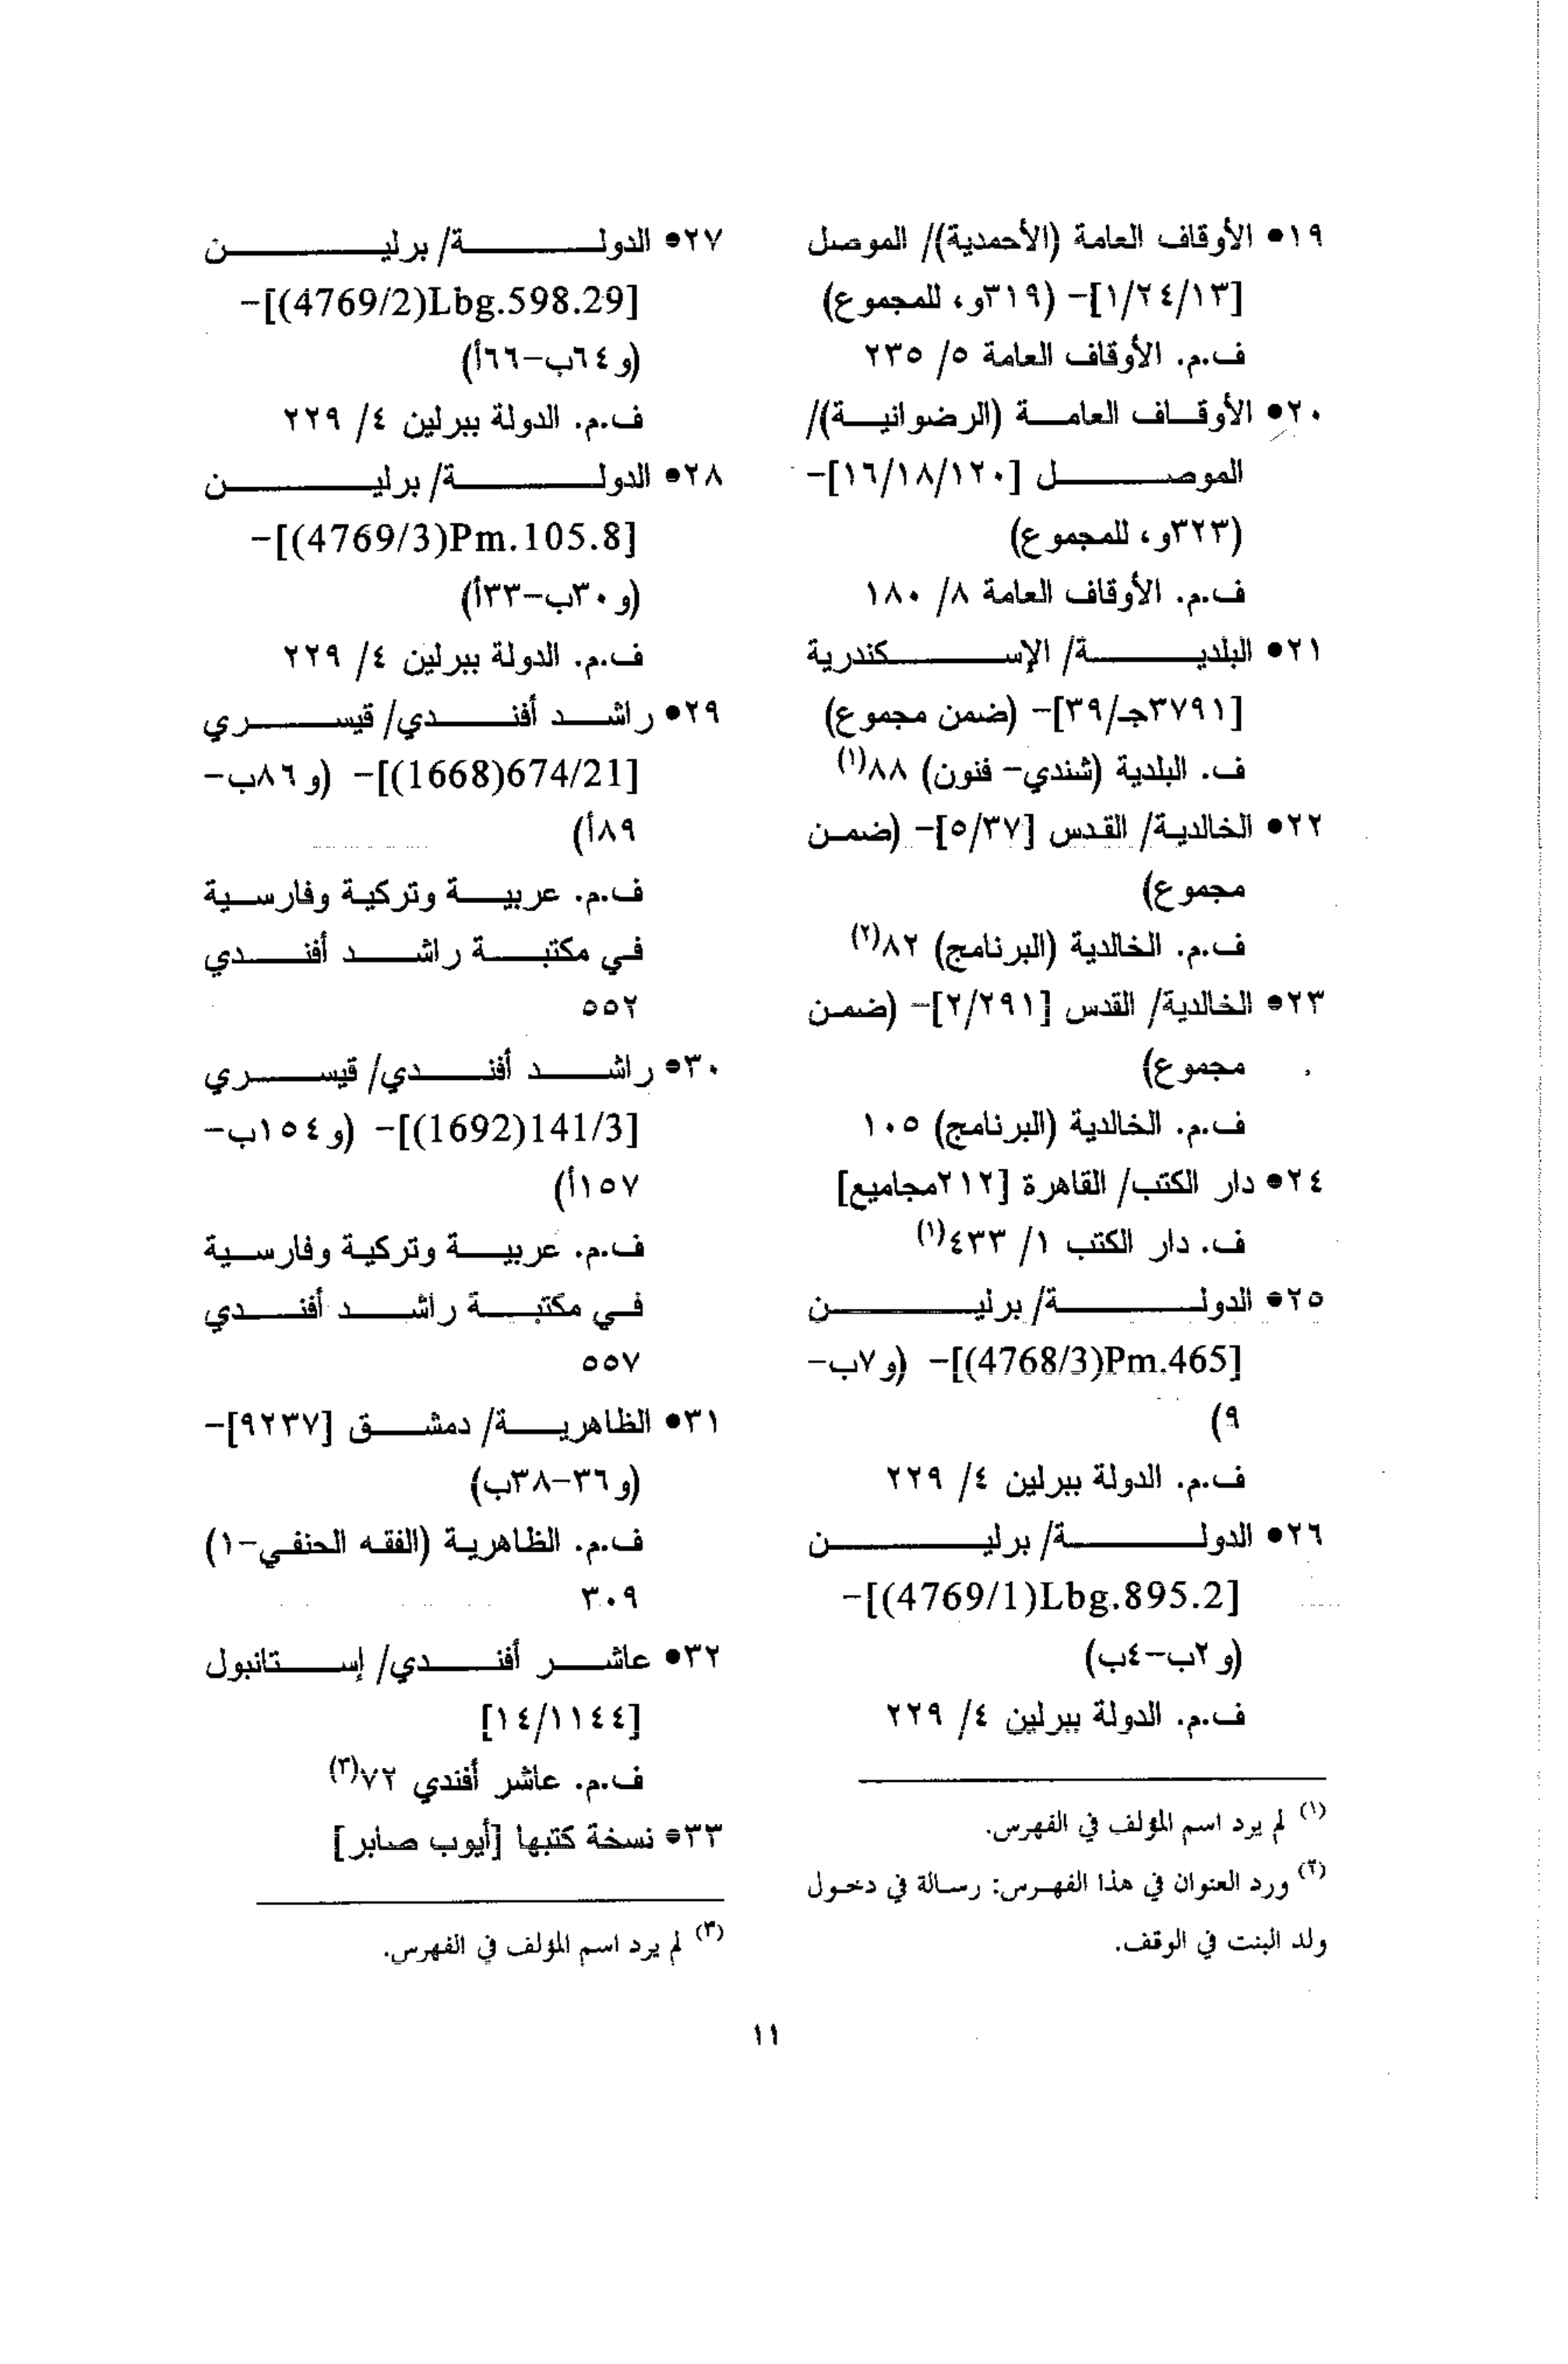 ١٩• الأوقاف العامة (الأحمدية)/ الموصل
[١/٢٤/١٣]- (٣١٩و، للمجموع)
ف.م. الأوقاف العامة ٥/ ٢٣٥
٢٠• الأوقاف العامة (الرضوانية)/
الموصل [١٦/١٨/١٢٠]-
(٣٢٣و، للمجموع)
ف.م. الأوقاف العامة ٨/ ١٨٠
٢١• البلدية/ الإسكندرية
[٣٧٩١جـ/٣٩]- (ضمن مجموع)
ف. البلدية (شندي- فنون) ٨٨(١)
٢٢• الخالدية/ القدس [٥/٣٧]- (ضمن
مجموع)
ف.م. الخالدية (البرنامج) ٨٢(٢)
٢٣• الخالدية/ القدس [٢/٢٩١]- (ضمن
مجموع)
ف.م. الخالدية (البرنامج) ١٠٥
٢٤• دار الكتب/ القاهرة [٢١٢مجاميع]
ف. دار الكتب ١/ ٤٣٣(١)
٢٥• الدولة/ برلين
[(4768/3)Pm.465]- (و٧ب-
٩)
ف.م. الدولة ببرلين ٤/ ٢٢٩
٢٦• الدولة/ برلين
[(4769/1)Lbg.895.2]-
(و٢ب-٤ب)
ف.م. الدولة ببرلين ٤/ ٢٢٩
(١) لم يرد اسم المؤلف في الفهرس.
(٢) ورد العنوان في هذا الفهرس: رسالة في دخول
ولد البنت في الوقف.
٢٧• الدولة/ برلين
[(4769/2)Lbg.598.29]-
(و٦٤ب-٦٦أ)
ف.م. الدولة ببرلين ٤/ ٢٢٩
٢٨• الدولة/ برلين
[(4769/3)Pm.105.8]-
(و٣٠ب-٣٣أ)
ف.م. الدولة ببرلين ٤/ ٢٢٩
٢٩• راشد أفندي/ قيسري
[(1668)674/21]- (و٨٦ب-
٨٩أ)
ف.م. عربية وتركية وفارسية
في مكتبة راشد أفندي
٥٥٢
٣٠• راشد أفندي/ قيسري
[(1692)141/3]- (و١٥٤ب-
١٥٧أ)
ف.م. عربية وتركية وفارسية
في مكتبة راشد أفندي
٥٥٧
٣١• الظاهرية/ دمشق [٩٢٣٧]-
(و٣٦-٣٨ب)
ف.م. الظاهرية (الفقه الحنفي-١)
٣٠٩
٣٢• عاشر أفندي/ إستانبول
[١٤/١١٤٤]
ف.م. عاشر أفندي ٧٢(٣)
٣٣• نسخة كتبها [أيوب صابر]
(٣) لم يرد اسم المؤلف في الفهرس.
١١